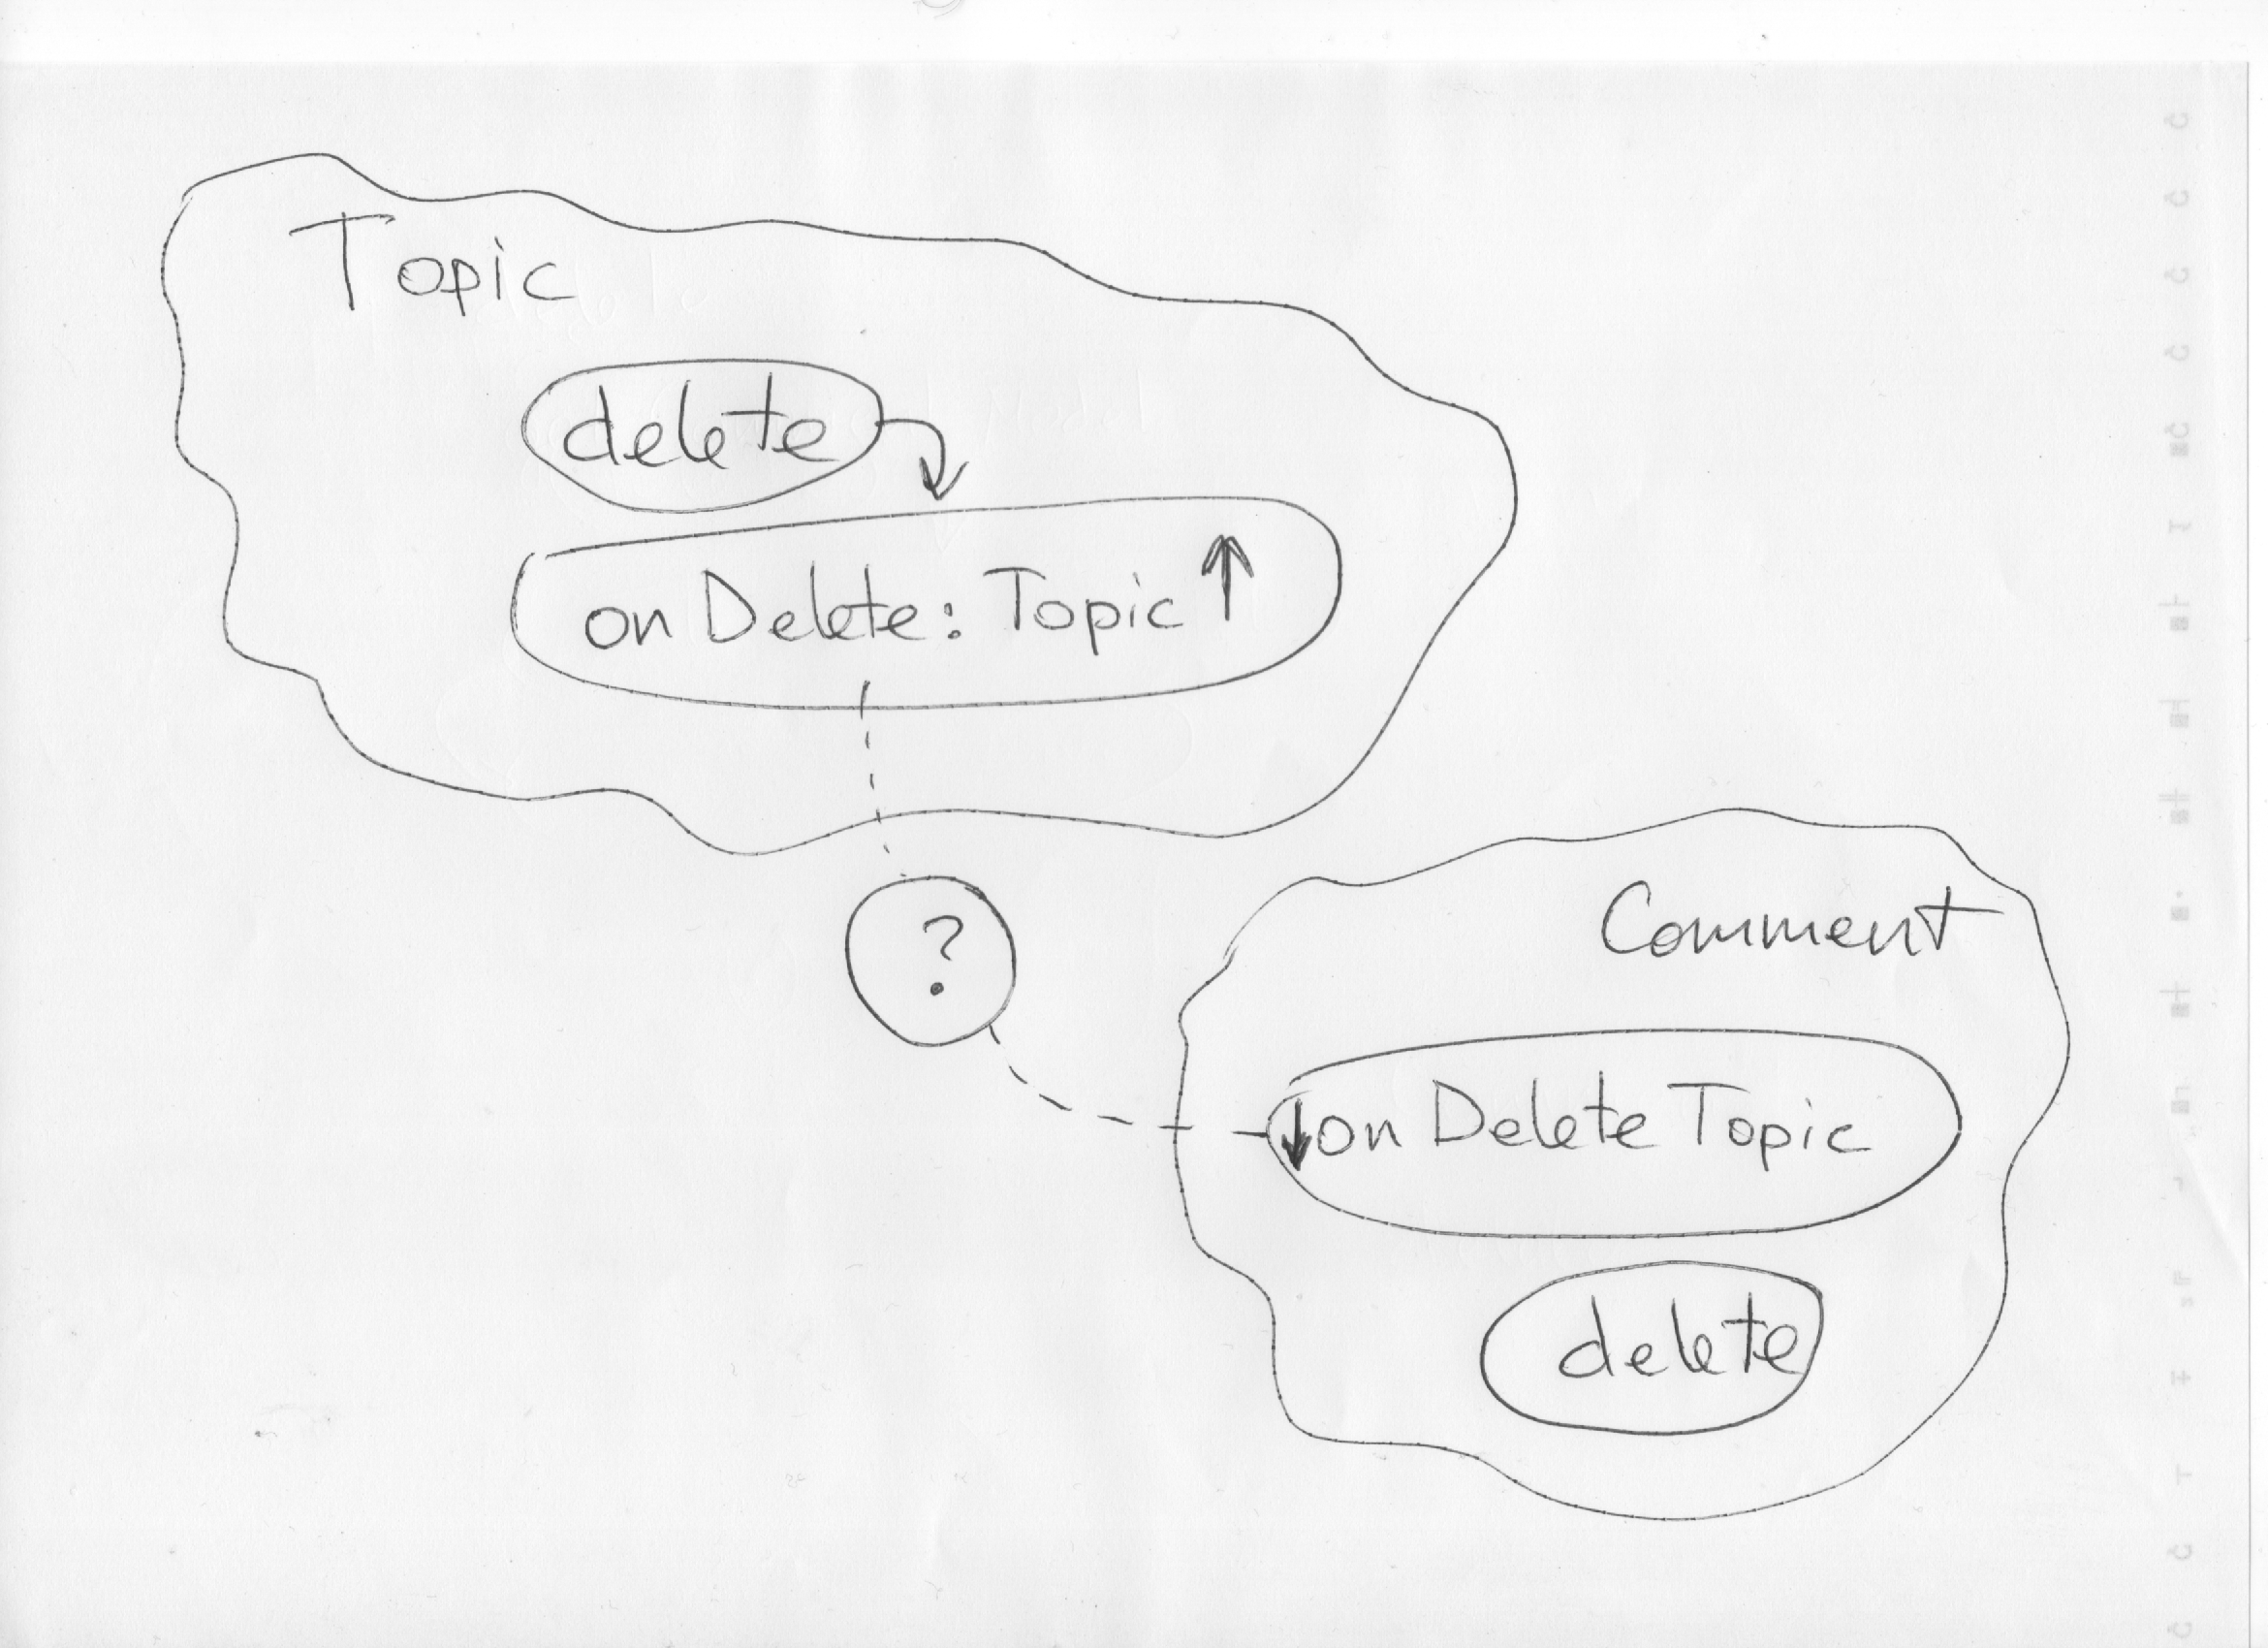 Topic
delete
on Delete: Topic ↑
?
Comment
↓ on Delete Topic
delete